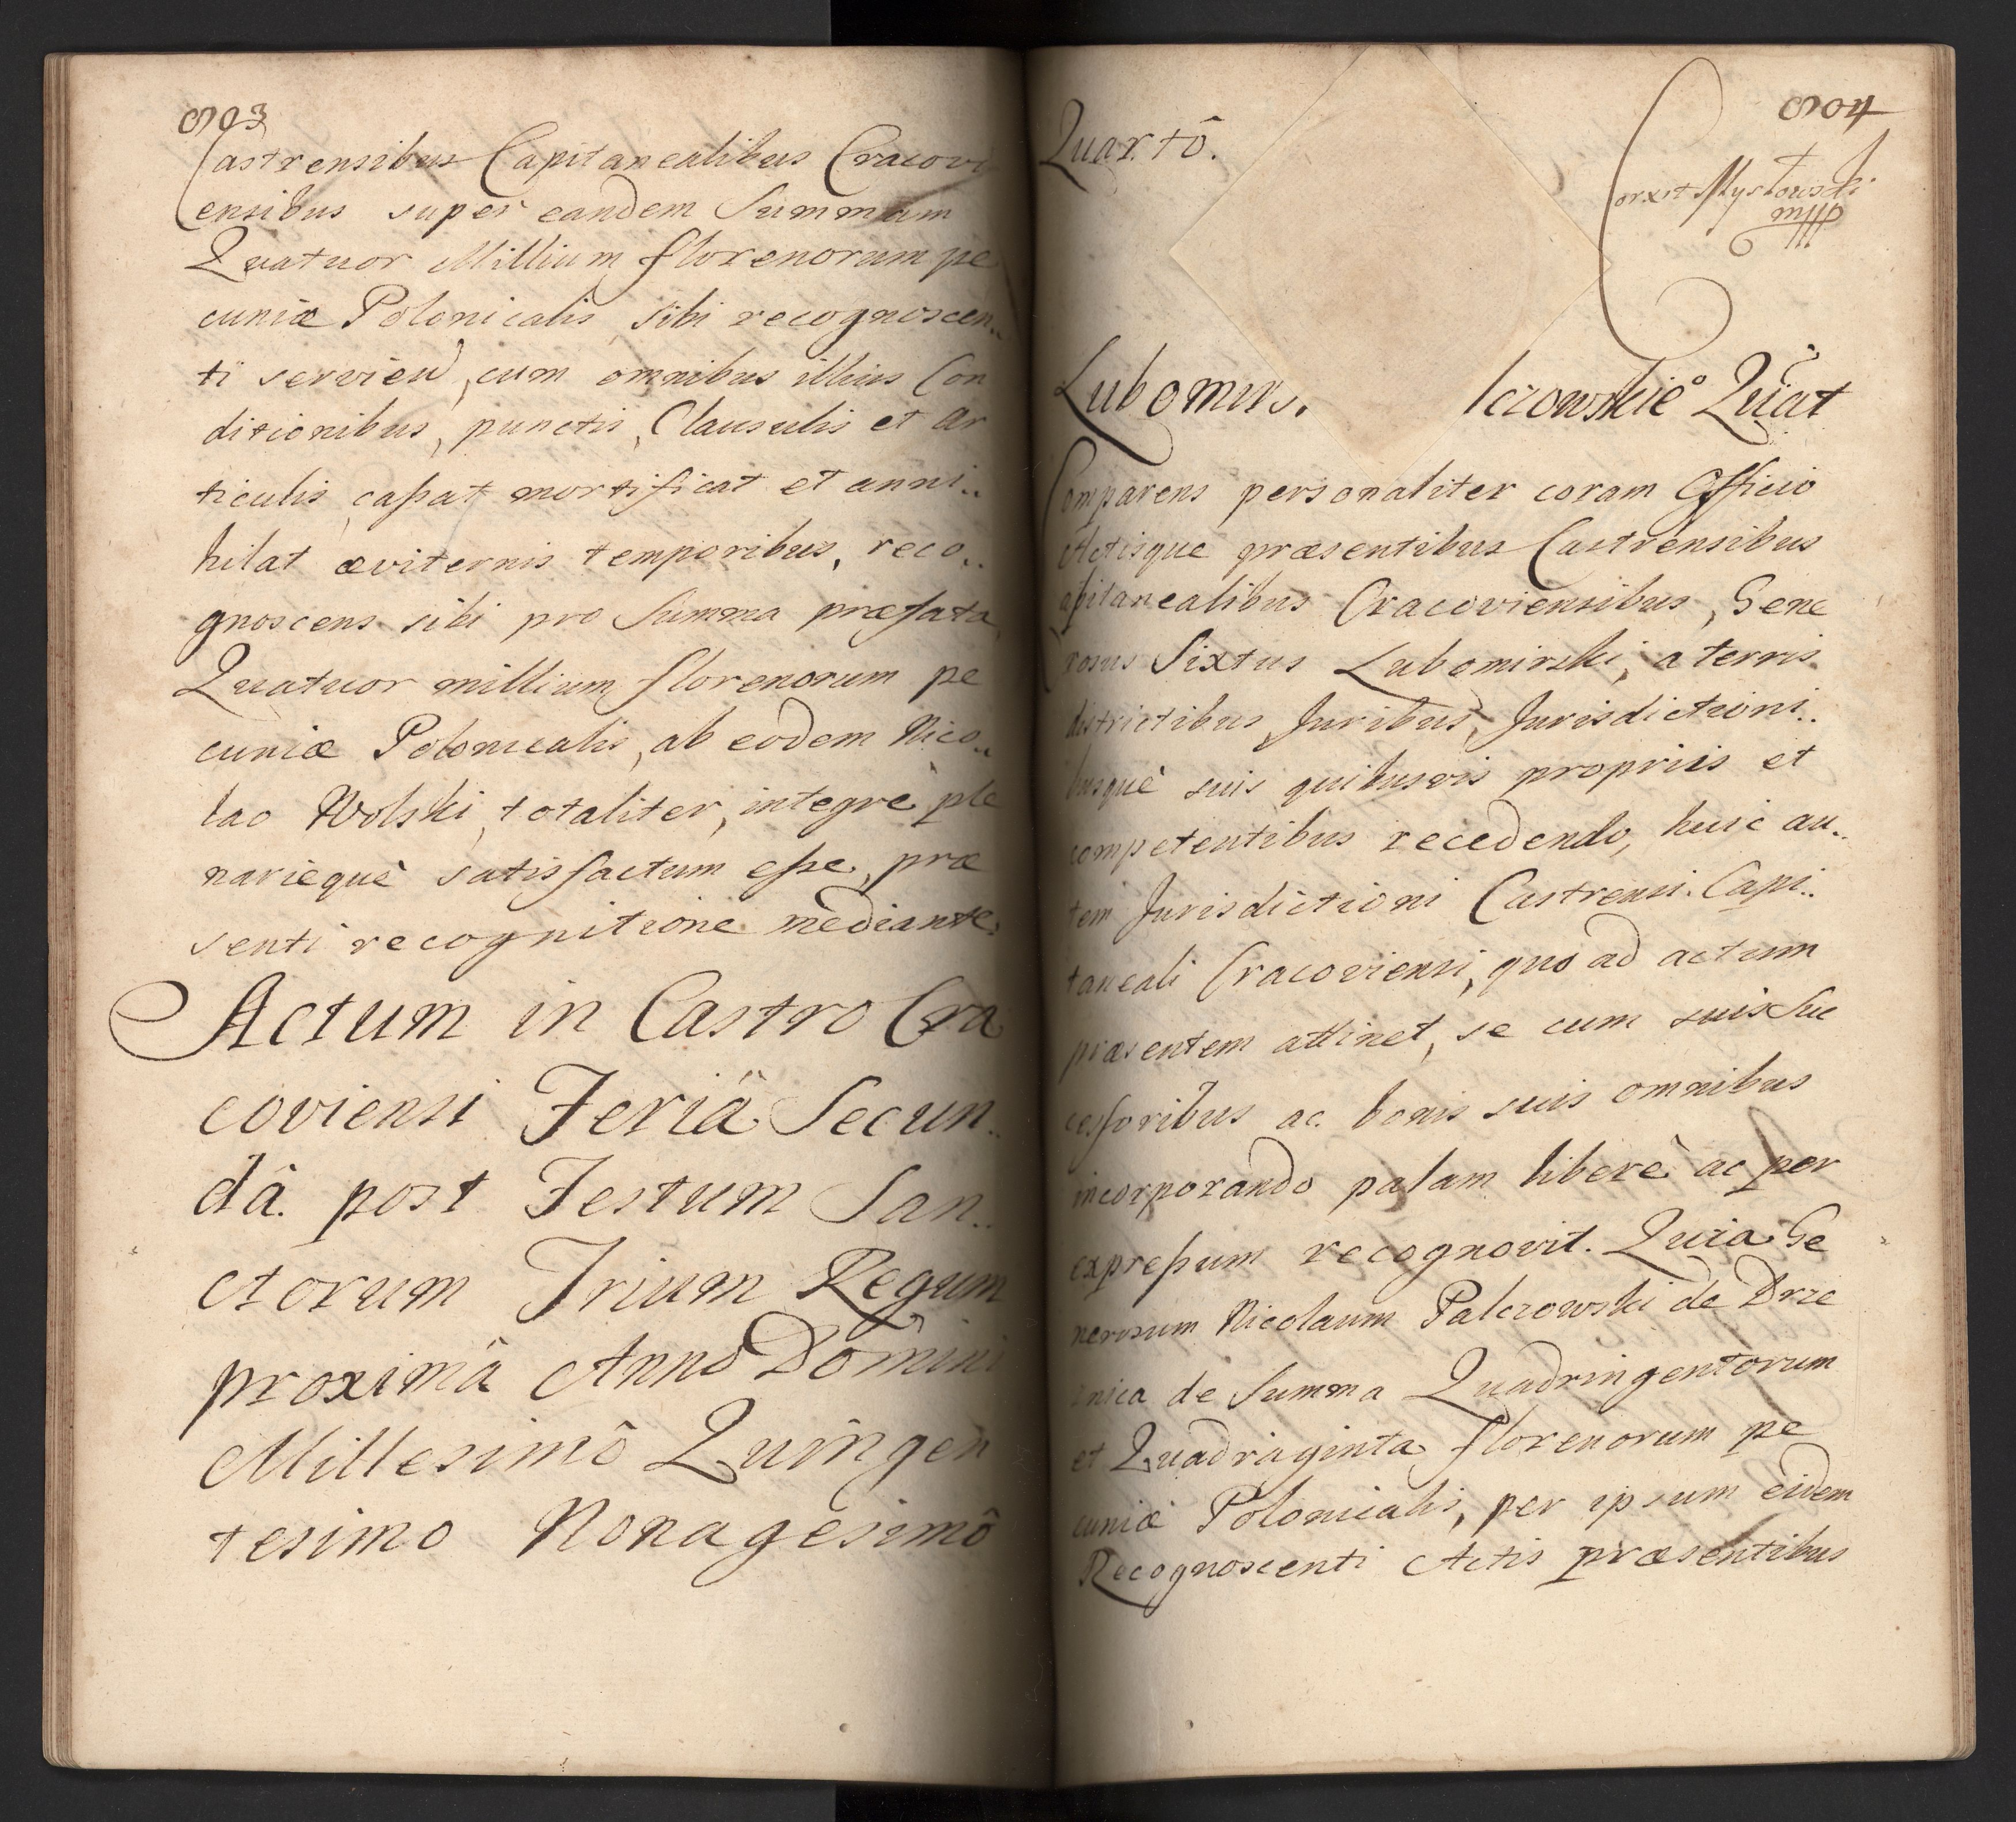 903
Castrensibus Capitanealibus Cracovi
ensibus super eandem Summam
Quatuor Millium florenorum pe
cuniæ Polonicalis sibi recognoscen..
ti servien, cum omnibus illius Con
ditionibus, punctis, Clausulis et Ar
ticulis cassat mortificat et anni..
hilat æviternis temporibus, reco..
gnoscens sibi pro Summa præfata
Quatuor millium florenorum pe
cuniæ Polonicalis, ab eodem Nico..
lao Wolski, totaliter, integrè ple
narièquè satisfactum esse, præ
senti recognitione mediante.
Actum in Castro Cra
coviensi Feriâ Secun..
dâ post Festum San..
ctorum Trium Regum
proximâ Anno Domini
Millesimô Quingen
tesimo Nonagesimô
904
Quartô.
Lubomirs. lczowskie° Quat
Comparens personaliter coram Officio
Actisque præsentibus Castrensibus
Capitanealibus Cracoviensibus, Gene
rosus Sixtus Lubomirski, a terris
districtibus Juribus, Jurisdictioni..
busquè suis quibusvis propriis et
competentibus recedendo, huic au..
tem Jurisdictioni Castrensi Capi..
taneali Cracoviensi, quo ad actum
præsentem attinet, se cum suis Suc
cessoribus ac bonis suis omnibus
incorporando palam liberè ac per
expressum recognovit. Quia Ge
nerosum Nicolaum Palczowski de Brze
znica de Summa Quadringentorum
et Quadraginta florenorum pe
cuniæ Polonicalis, per ipsum eidem
Recognoscenti Actis præsentibus